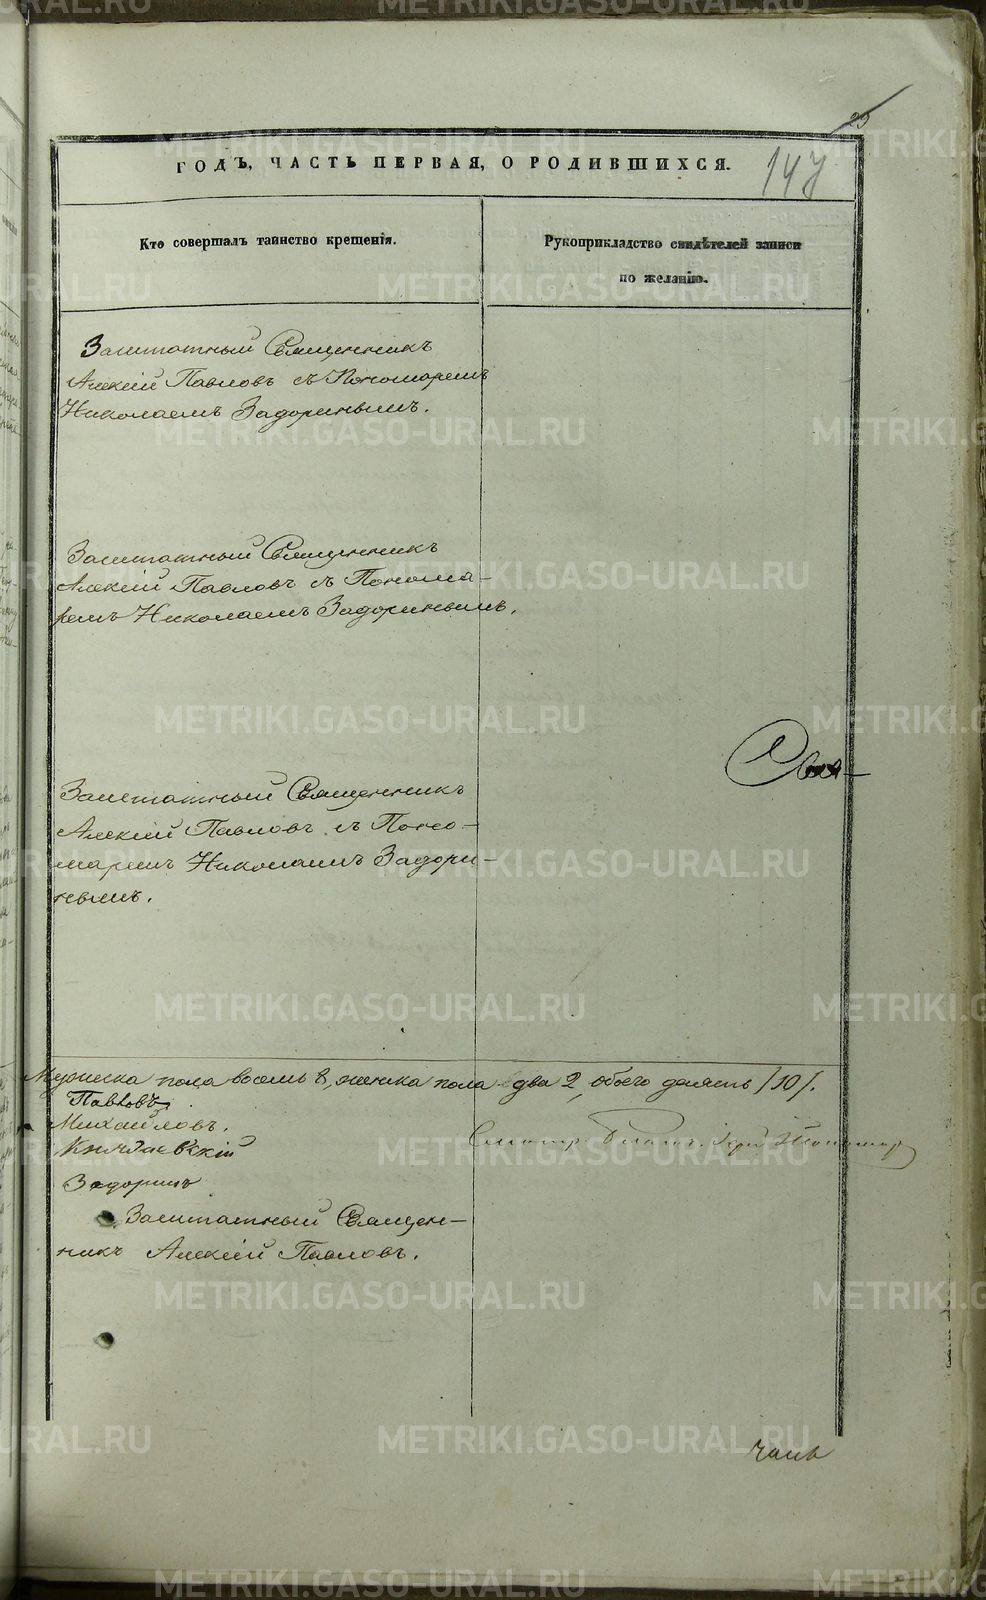 25
147
ГОДЪ, ЧАСТЬ ПЕРВАЯ, О РОДИВШИХСЯ.
Кто совершалъ таинство крещенія.
Рукоприкладство свидѣтелей записи
по желанію.
Заштатный Священникъ
Алексій Павловъ съ Пономаремъ
Николаемъ Задоринымъ.
Заштатный Священникъ
Алексій Павловъ съ Понома-
ремъ Николаемъ Задоринымъ.
Свя-
Заштатный Священникъ
Алексій Павловъ съ Поно-
маремъ Николаемъ Задори-
нымъ.
Мужеска пола восемь 8, женска пола два 2, обоего десять /10/.
Павловъ
Михайловъ.
Задоринъ
Заштатный Священ-
никъ Алексій Павловъ.
METRIKI.GASO-URAL.RU